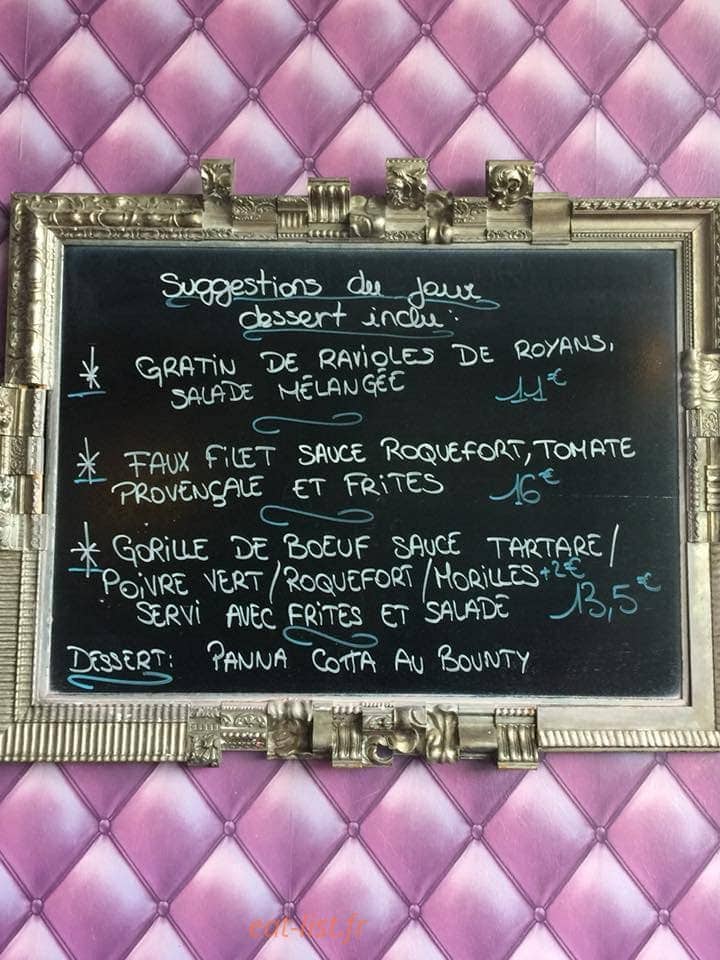 Suggestions du jour
dessert inclu:
* GRATIN DE RAVIOLES DE ROYANS,
SALADE MÉLANGÉE 11€
* FAUX FILET SAUCE ROQUEFORT, TOMATE
PROVENÇALE ET FRITES 16€
* GORILLE DE BOEUF SAUCE TARTARE/
POIVRE VERT/ROQUEFORT/MORILLES +2€
SERVI AVEC FRITES ET SALADE 13,5€
DESSERT: PANNA COTTA AU BOUNTY
eat-list.fr